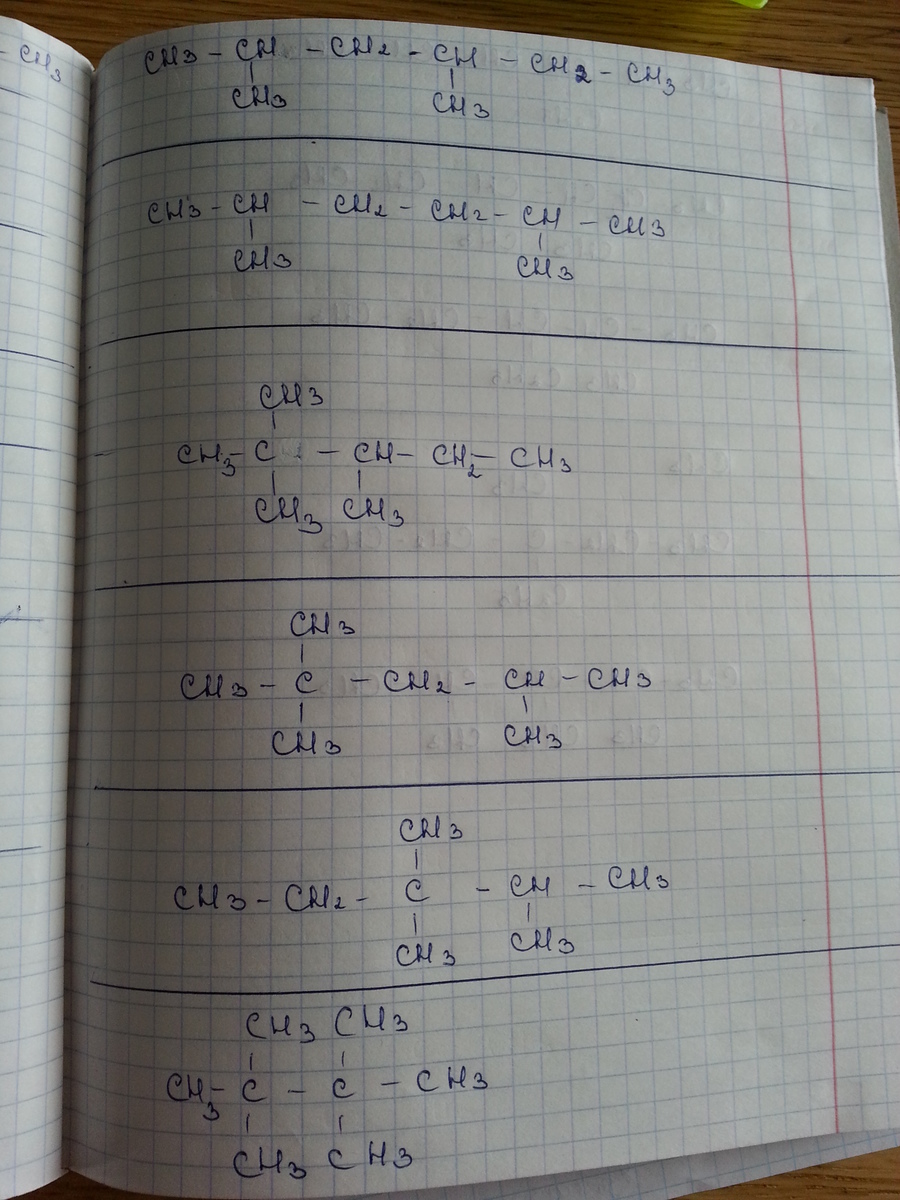 CH3
CH3 - CH - CH2 - CH - CH2 - CH3
CH3 CH3
CH3 - CH - CH2 - CH2 - CH - CH3
CH3 CH3
CH3
CH3 - C - CH - CH2 - CH3
CH3 CH3
CH3
CH3 - C - CH2 - CH - CH3
CH3 CH3
CH3
CH3 - CH2 - C - CH - CH3
CH3 CH3
CH3 CH3
CH3 - C - C - CH3
CH3 CH3